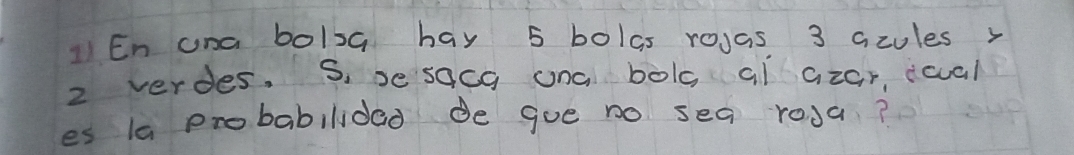 1) En una bolsa hay 5 bolas rojas 3 azules y
2 verdes. Si se saca una bola al azar, cual
es la probabilidad de que no sea roja?